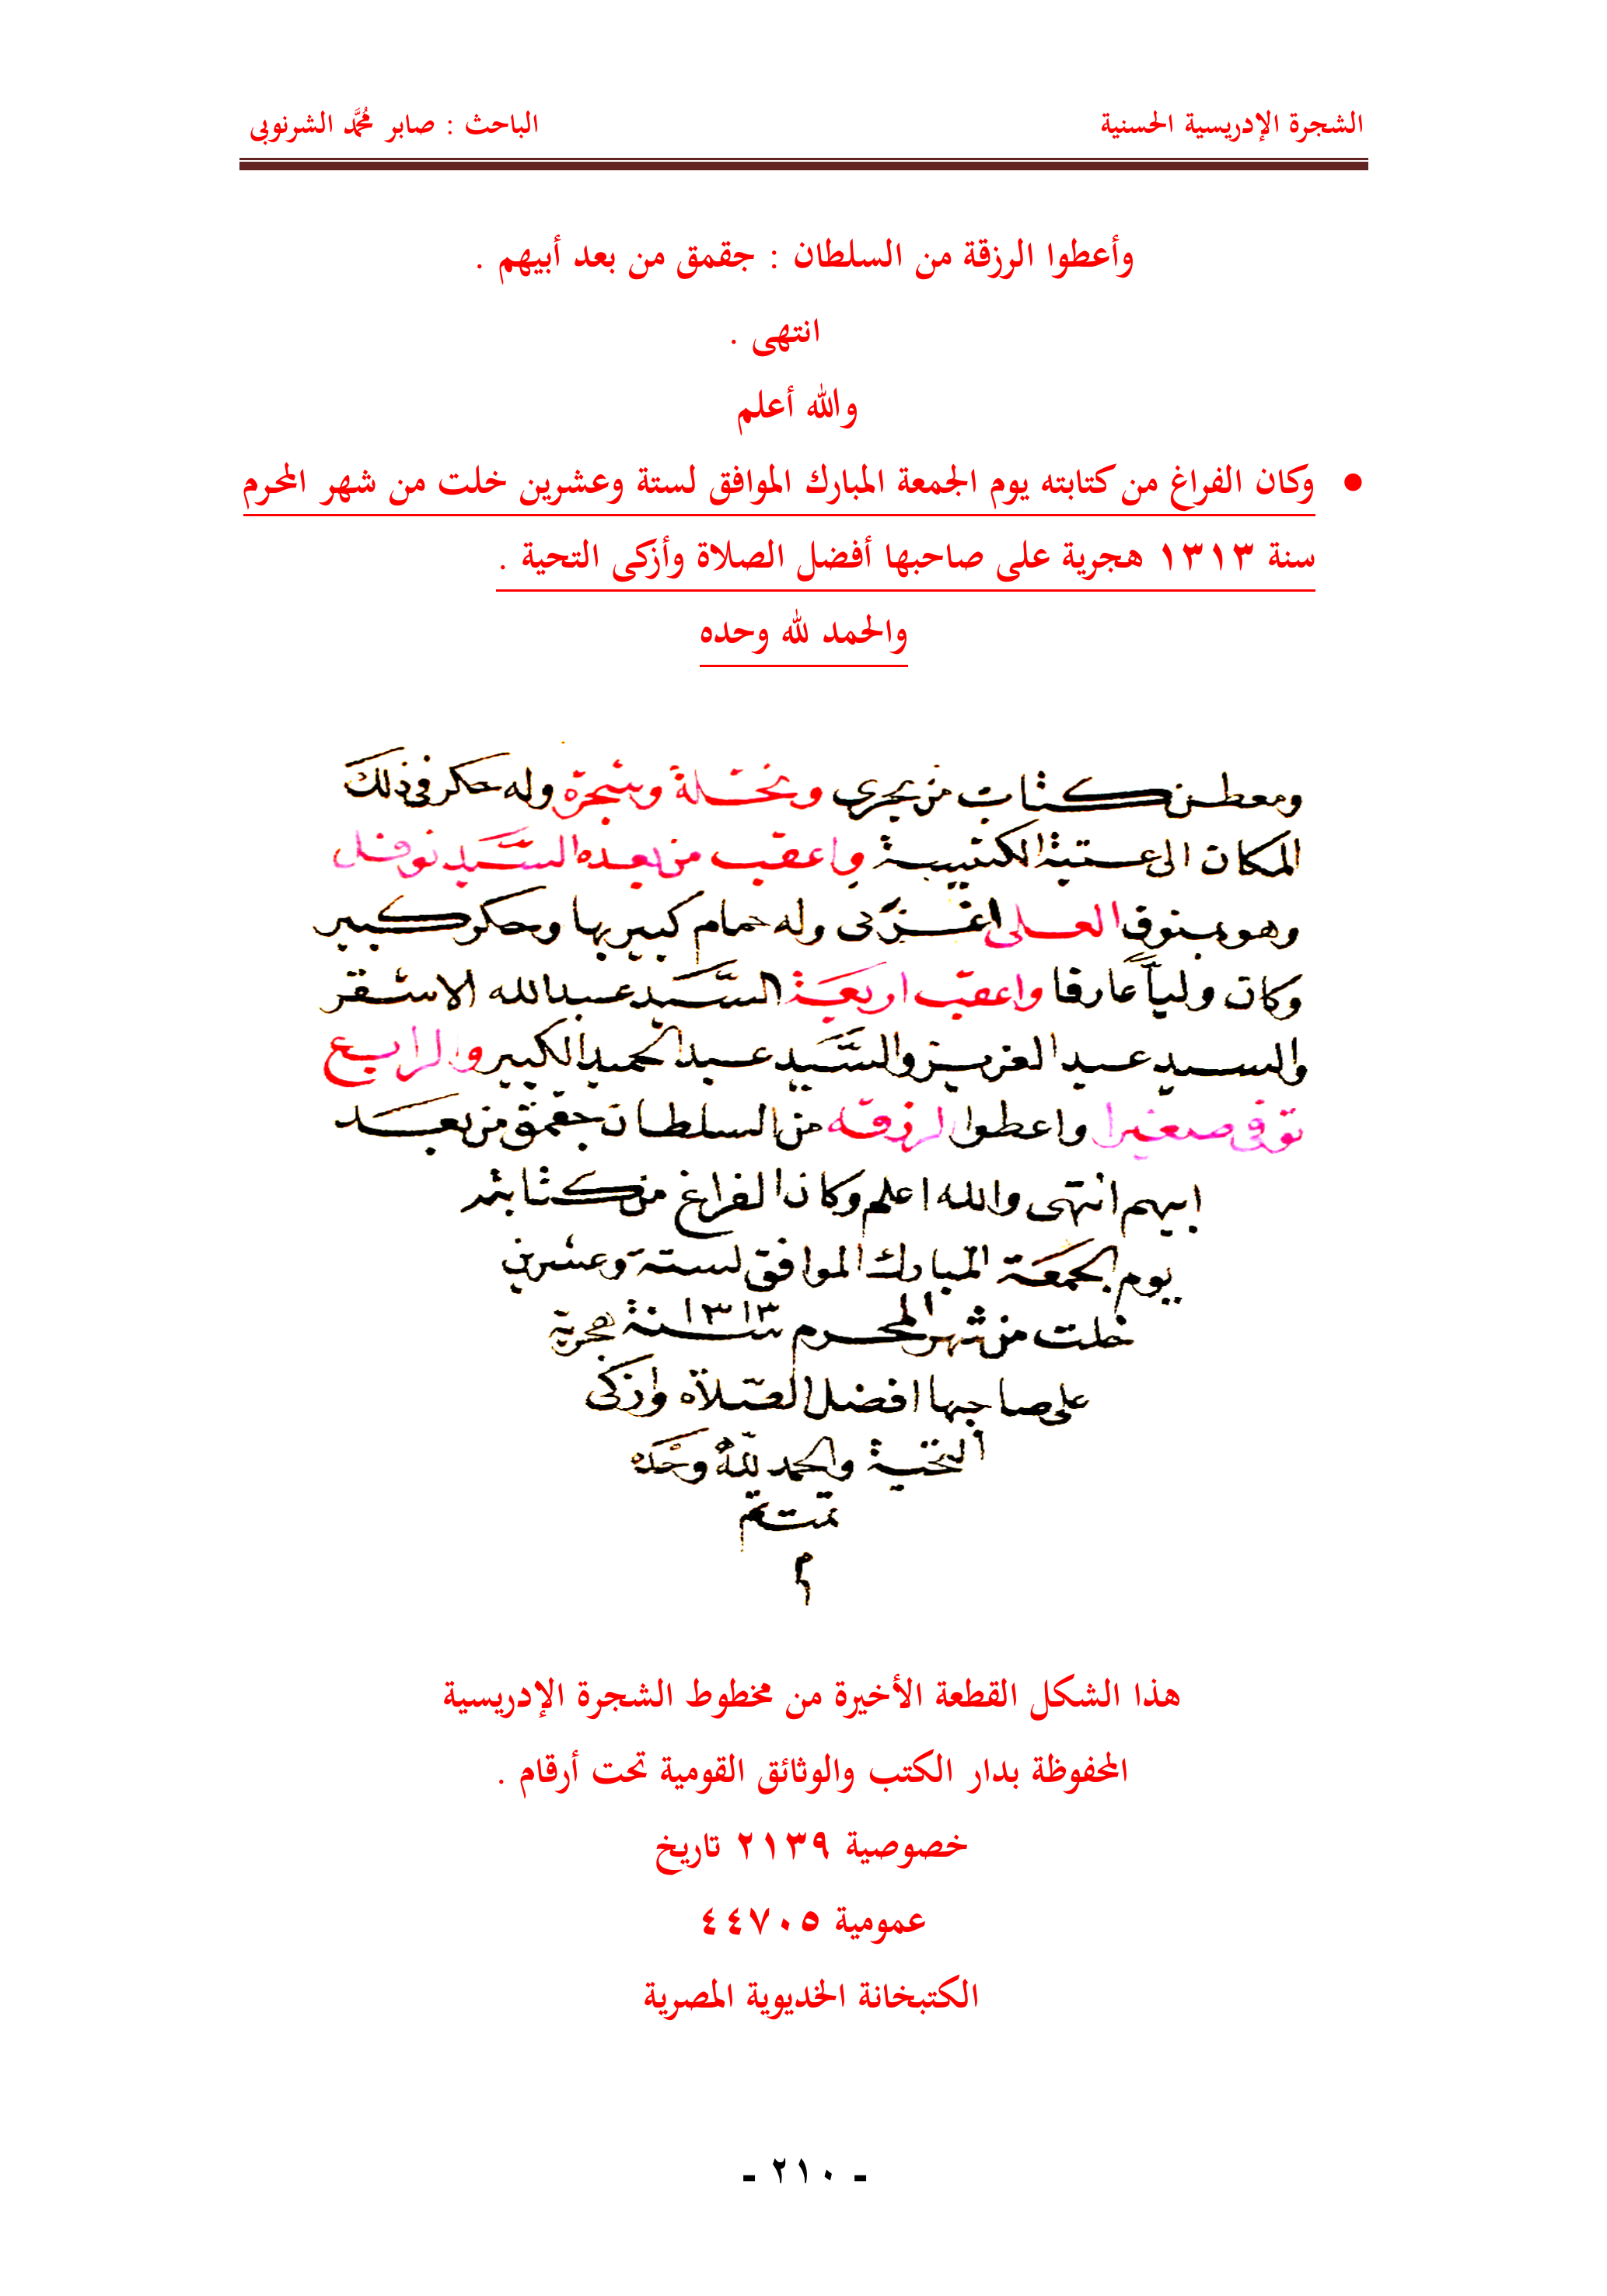 الشجرة الإدريسية الحسنية
الباحث : صابر محمَّد الشرنوبى
وأعطوا الرزقة من السلطان : جقمق من بعد أبيهم .
انتهى .
والله أعلم
• وكان الفراغ من كتابته يوم الجمعة المبارك الموافق لستة وعشرين خلت من شهر المحرم
سنة ١٣١٣ هجرية على صاحبها أفضل الصلاة وأزكى التحية .
والحمد لله وحده
ومعطن كتات من بحرى ونخلة وشجرة وله حكر فى ذلك
المكان الى عتبة الكتيبية واعقب من بعده السَّيد نوفل
وهو بمنوف العلى وله حمام كبير بها وحكر كبير
وكان ولياً عارفا واعقب اربعة السَّيد عبدالله الاشقر
والسيد عبد العزيز والسَّيد عبد الحميد الكبير والرابع
توفى صغيرا واعطوا لرزقه من السلطان جقمق من بعد
ابيهم انتهى والله اعلم وكان الفراغ من كتابته
يوم الجمعة المبارك الموافق لستة وعشرين
خلت من شهر المحرم سنة ١٣١٣ هجرية
على صاحبها افضل الصّلاة وازكى
التحية والحمد لله وحده
تمت
م
هذا الشكل القطعة الأخيرة من مخطوط الشجرة الإدريسية
المحفوظة بدار الكتب والوثائق القومية تحت أرقام .
خصوصية ٢١٣٩ تاريخ
عمومية ٤٤٧٠٥
الكتبخانة الخديوية المصرية
- ٢١٠ -